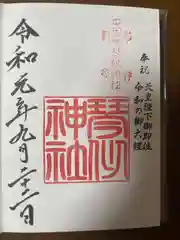 奉祝
天皇陛下御即位
令和の御大礼
琴似
神社
令和元年九月二十二日